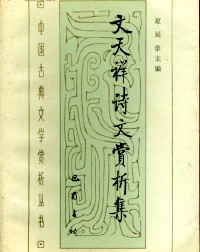 夏延章主编
文天祥诗文赏析集
中国古典文学赏析丛书
巴蜀书社